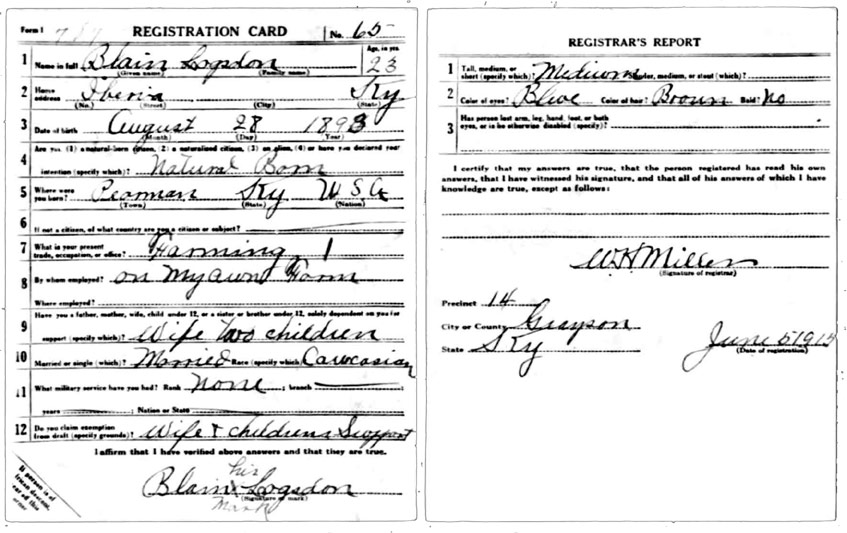 Form 1 REGISTRATION CARD No. 65
1 Name in full Blain Logsdon Age, in yrs 23
(Given name) (Family name)
2 Home address Iberia Ky
(No.) (Street) (City) (State)
3 Date of birth August 28 1893
(Month) (Day) (Year)
Are you (1) a natural-born citizen, (2) a naturalized citizen, (3) an alien, (4) or have you declared your
4 intention (specify which)? Natural Born
5 Where were you born? Pearman Ky U S A
(Town) (State) (Nation)
6 If not a citizen, of what country are you a citizen or subject?
7 What is your present trade, occupation, or office? Farming 1
8 By whom employed? on my own Farm
Where employed?
Have you a father, mother, wife, child under 12, or a sister or brother under 12, solely dependent on you for
9 support (specify which)? Wife two children
10 Married or single (which)? Married Race (specify which) Caucasian
11 What military service have you had? Rank none ; branch
years ; Nation or State
12 Do you claim exemption from draft (specify grounds)? Wife & childrens Support
I affirm that I have verified above answers and that they are true.
his
Blain x Logsdon
(Signature or mark)
Mark
If person is of
African descent,
tear off this
corner
REGISTRAR'S REPORT
1 Tall, medium, or short (specify which)? Medium Slender, medium, or stout (which)?
2 Color of eyes? Blue Color of hair? Brown Bald? No
3 Has person lost arm, leg, hand, foot, or both eyes, or is he otherwise disabled (specify)?
I certify that my answers are true, that the person registered has read his own
answers, that I have witnessed his signature, and that all of his answers of which I have
knowledge are true, except as follows:
W H Miller
(Signature of registrar)
Precinct 14
City or County Grayson
State Ky June 5 1917
(Date of registration)